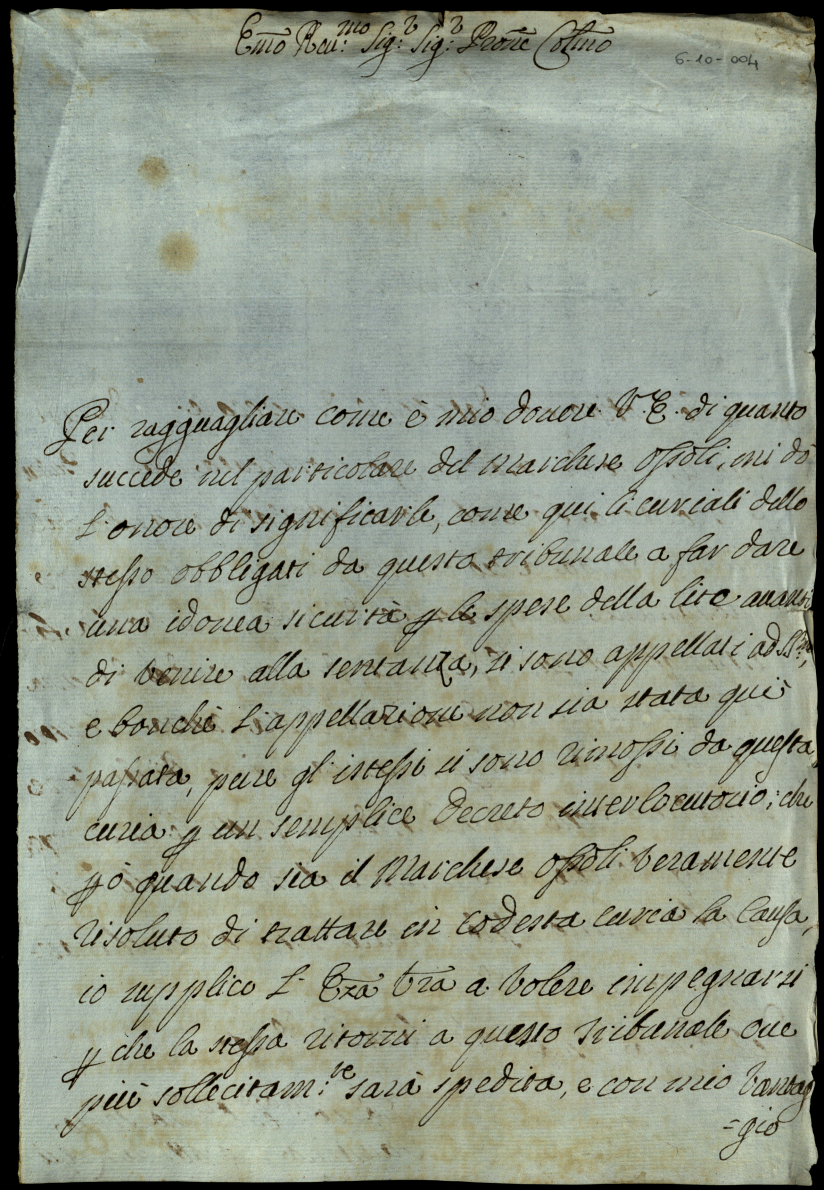 Emo Reu:mo Sig:r Sig:r Prone Colmo
6-10-004
Per ragguagliare come è mio douere V. E. di quanto
succede nel particolare del Marchese Ossoli, mi dò
l'onore di significarle, come qui li curiali dello
stesso obbligati da questo tribunale a far dare
una idonea sicurtà p le spese della lite auanti
di venire alla sentanza, si sono appellati ad
e bonchè l'appellazione non sia stata quì
passata, pure gl'istessi si sono rimossi da questa
curia p un semplice decreto interlocutorio; che
pò quando sia il Marchese Ossoli veramente
risoluto di trattare in codesta curia la Causa,
io supplico l'Eza Vra a volere impegnarsi
p che la stessa ritorni a questo Tribunale oue
più sollecitam:te sarà spedita, e con mio vantag
=gio